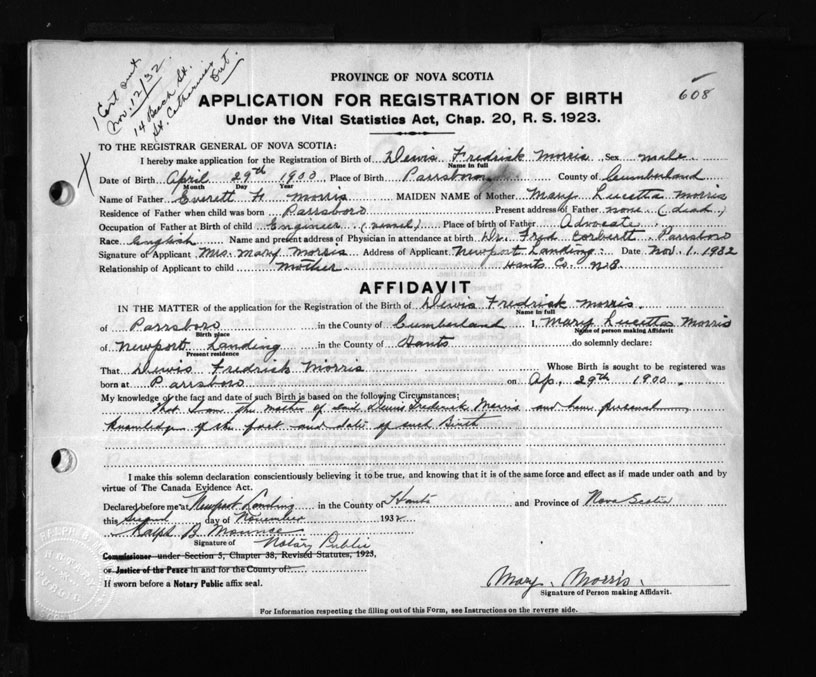 1 Cert out
Nov. 12/32.
14 Beach St.
St. Catharines
Ont.
608
PROVINCE OF NOVA SCOTIA
APPLICATION FOR REGISTRATION OF BIRTH
Under the Vital Statistics Act, Chap. 20, R. S. 1923.
TO THE REGISTRAR GENERAL OF NOVA SCOTIA:
X
I hereby make application for the Registration of Birth of Dewis Fredrick Morris Sex male
Name in full
Date of Birth April 29th 1900 Place of Birth Parrsboro County of Cumberland
Month Day Year
Name of Father Everett H Morris MAIDEN NAME of Mother Mary Lucetta Morris
Residence of Father when child was born Parrsboro Present address of Father none (dead)
Occupation of Father at Birth of child Engineer (vessel) Place of birth of Father Advocate
Race English Name and present address of Physician in attendance at birth Dr. Fred Corbett. Parrsboro
Signature of Applicant Mrs. Mary Morris Address of Applicant Newport Landing Date Nov. 1. 1932
Relationship of Applicant to child mother Hants Co. N.S.
AFFIDAVIT
IN THE MATTER of the application for the Registration of the Birth of Dewis Fredrick Morris.
Name in full
of Parrsboro in the County of Cumberland I, Mary Lucetta Morris
Birth place Name of person making Affidavit
of Newport Landing in the County of Hants do solemnly declare:
Present residence
That Dewis Fredrick Morris Whose Birth is sought to be registered was
born at Parrsboro on Ap. 29th 1900.
My knowledge of the fact and date of such Birth is based on the following Circumstances:
That I am the mother of said Dewis Frederick Morris and have personal
knowledge of the fact and date of such birth
I make this solemn declaration conscientiously believing it to be true, and knowing that it is of the same force and effect as if made under oath and by
virtue of The Canada Evidence Act.
Declared before me at Newport Landing in the County of Hants and Province of Nova Scotia
this Second day of November 1932
Ralph B
Signature of Notary Public
Commissioner under Section 5, Chapter 38, Revised Statutes, 1923,
or Justice of the Peace in and for the County of
If sworn before a Notary Public affix seal.
Mary Morris.
Signature of Person making Affidavit.
For Information respecting the filling out of this Form, see Instructions on the reverse side.